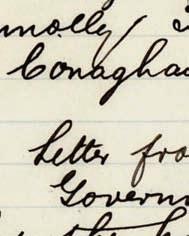 nnolly/
Conaghan
Letter fro
Govern